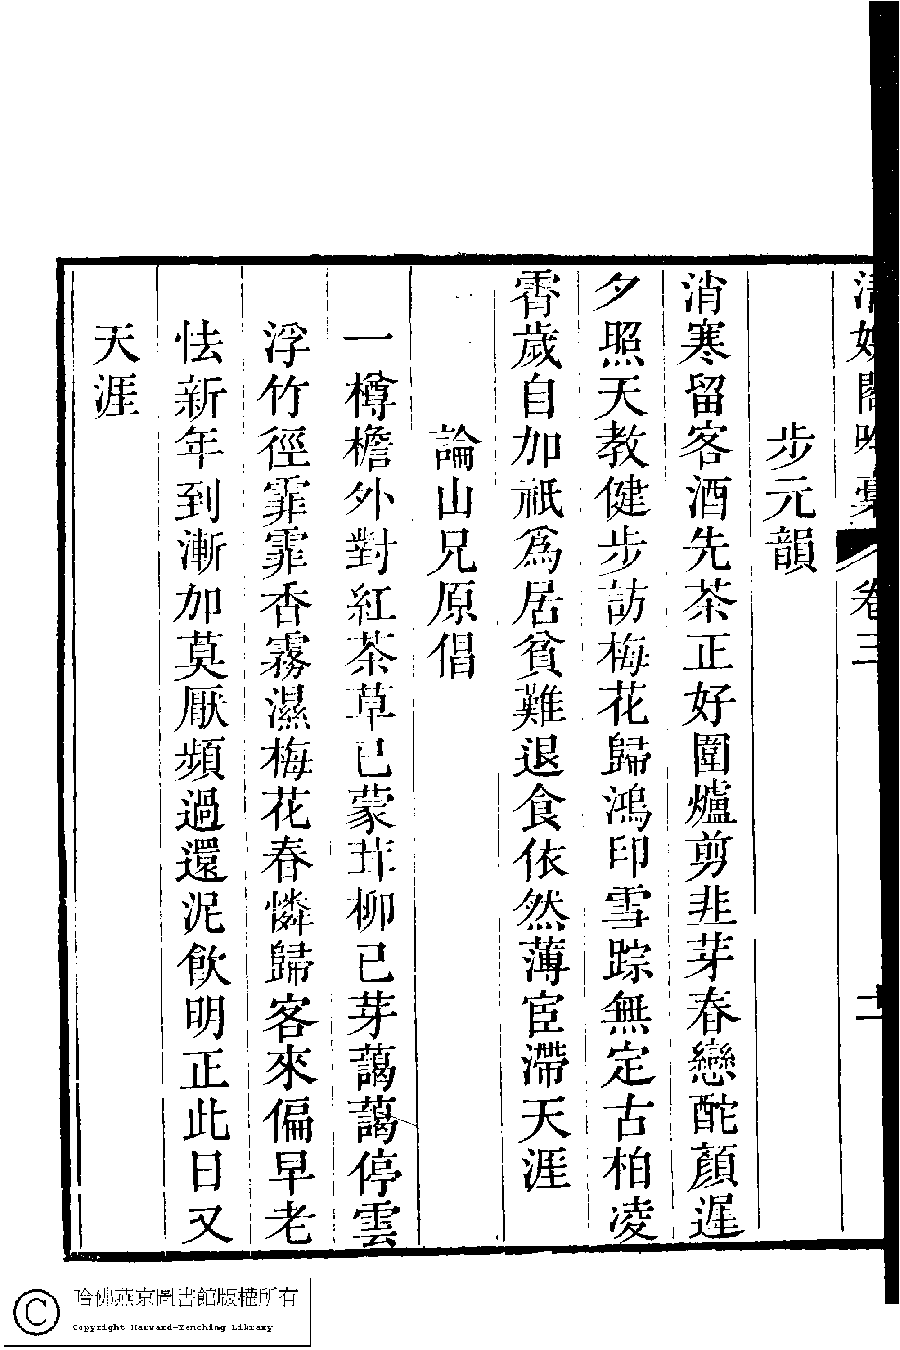 好閣吟 卷三
步元韻
消寒留客酒先茶正好圍爐剪韭芽春戀酡顏遲
夕照天教健步訪梅花歸鴻印雪踪無定古柏凌
霄歲自加祇為居貧難退食依然薄宦滯天涯
論山兄原倡
一樽檐外對紅茶草已蒙茸柳已芽藹藹停雲
浮竹徑霏霏香霧濕梅花春憐歸客來偏早老
怯新年到漸加莫厭頻過還泥飲明正此日又
天涯
哈佛燕京圖書館版權所有
Copyright Harvard-Yenching Library